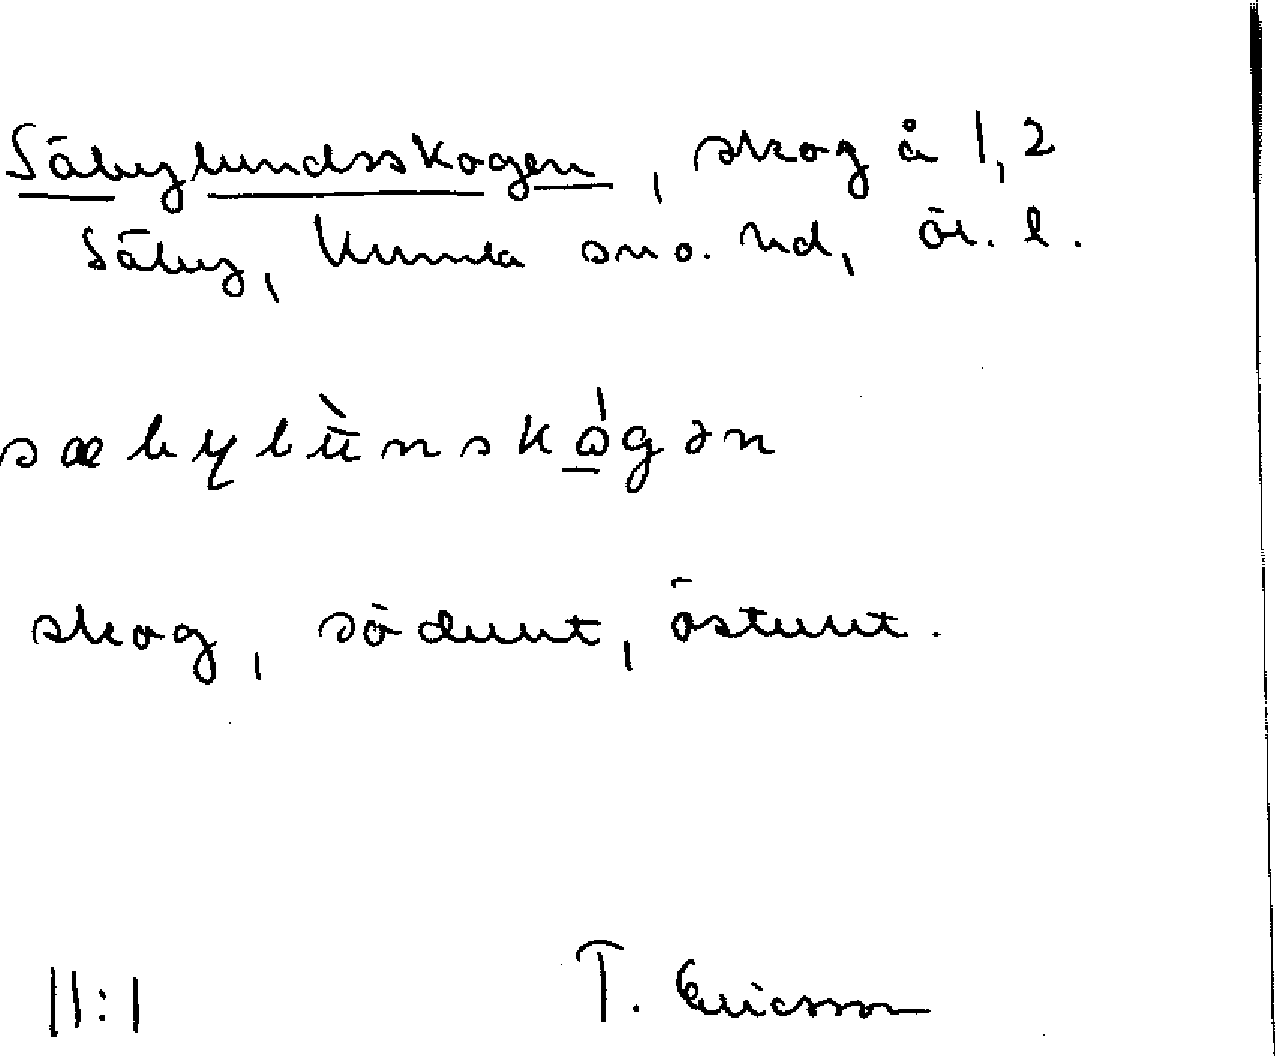 Säbylundsskogen, skog å 1,2
Säby, Kumla sn o. hd, Ör. l.
sæbylùnskógən
skog, söderut, österut.
11:1 T. Ericsson